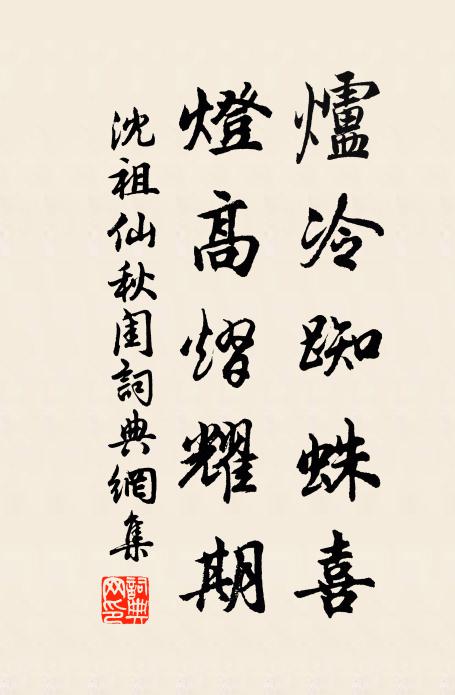 爐冷踟蛛喜
燈高熠耀期
沈祖仙秋閨詞典網集
詞典
网印